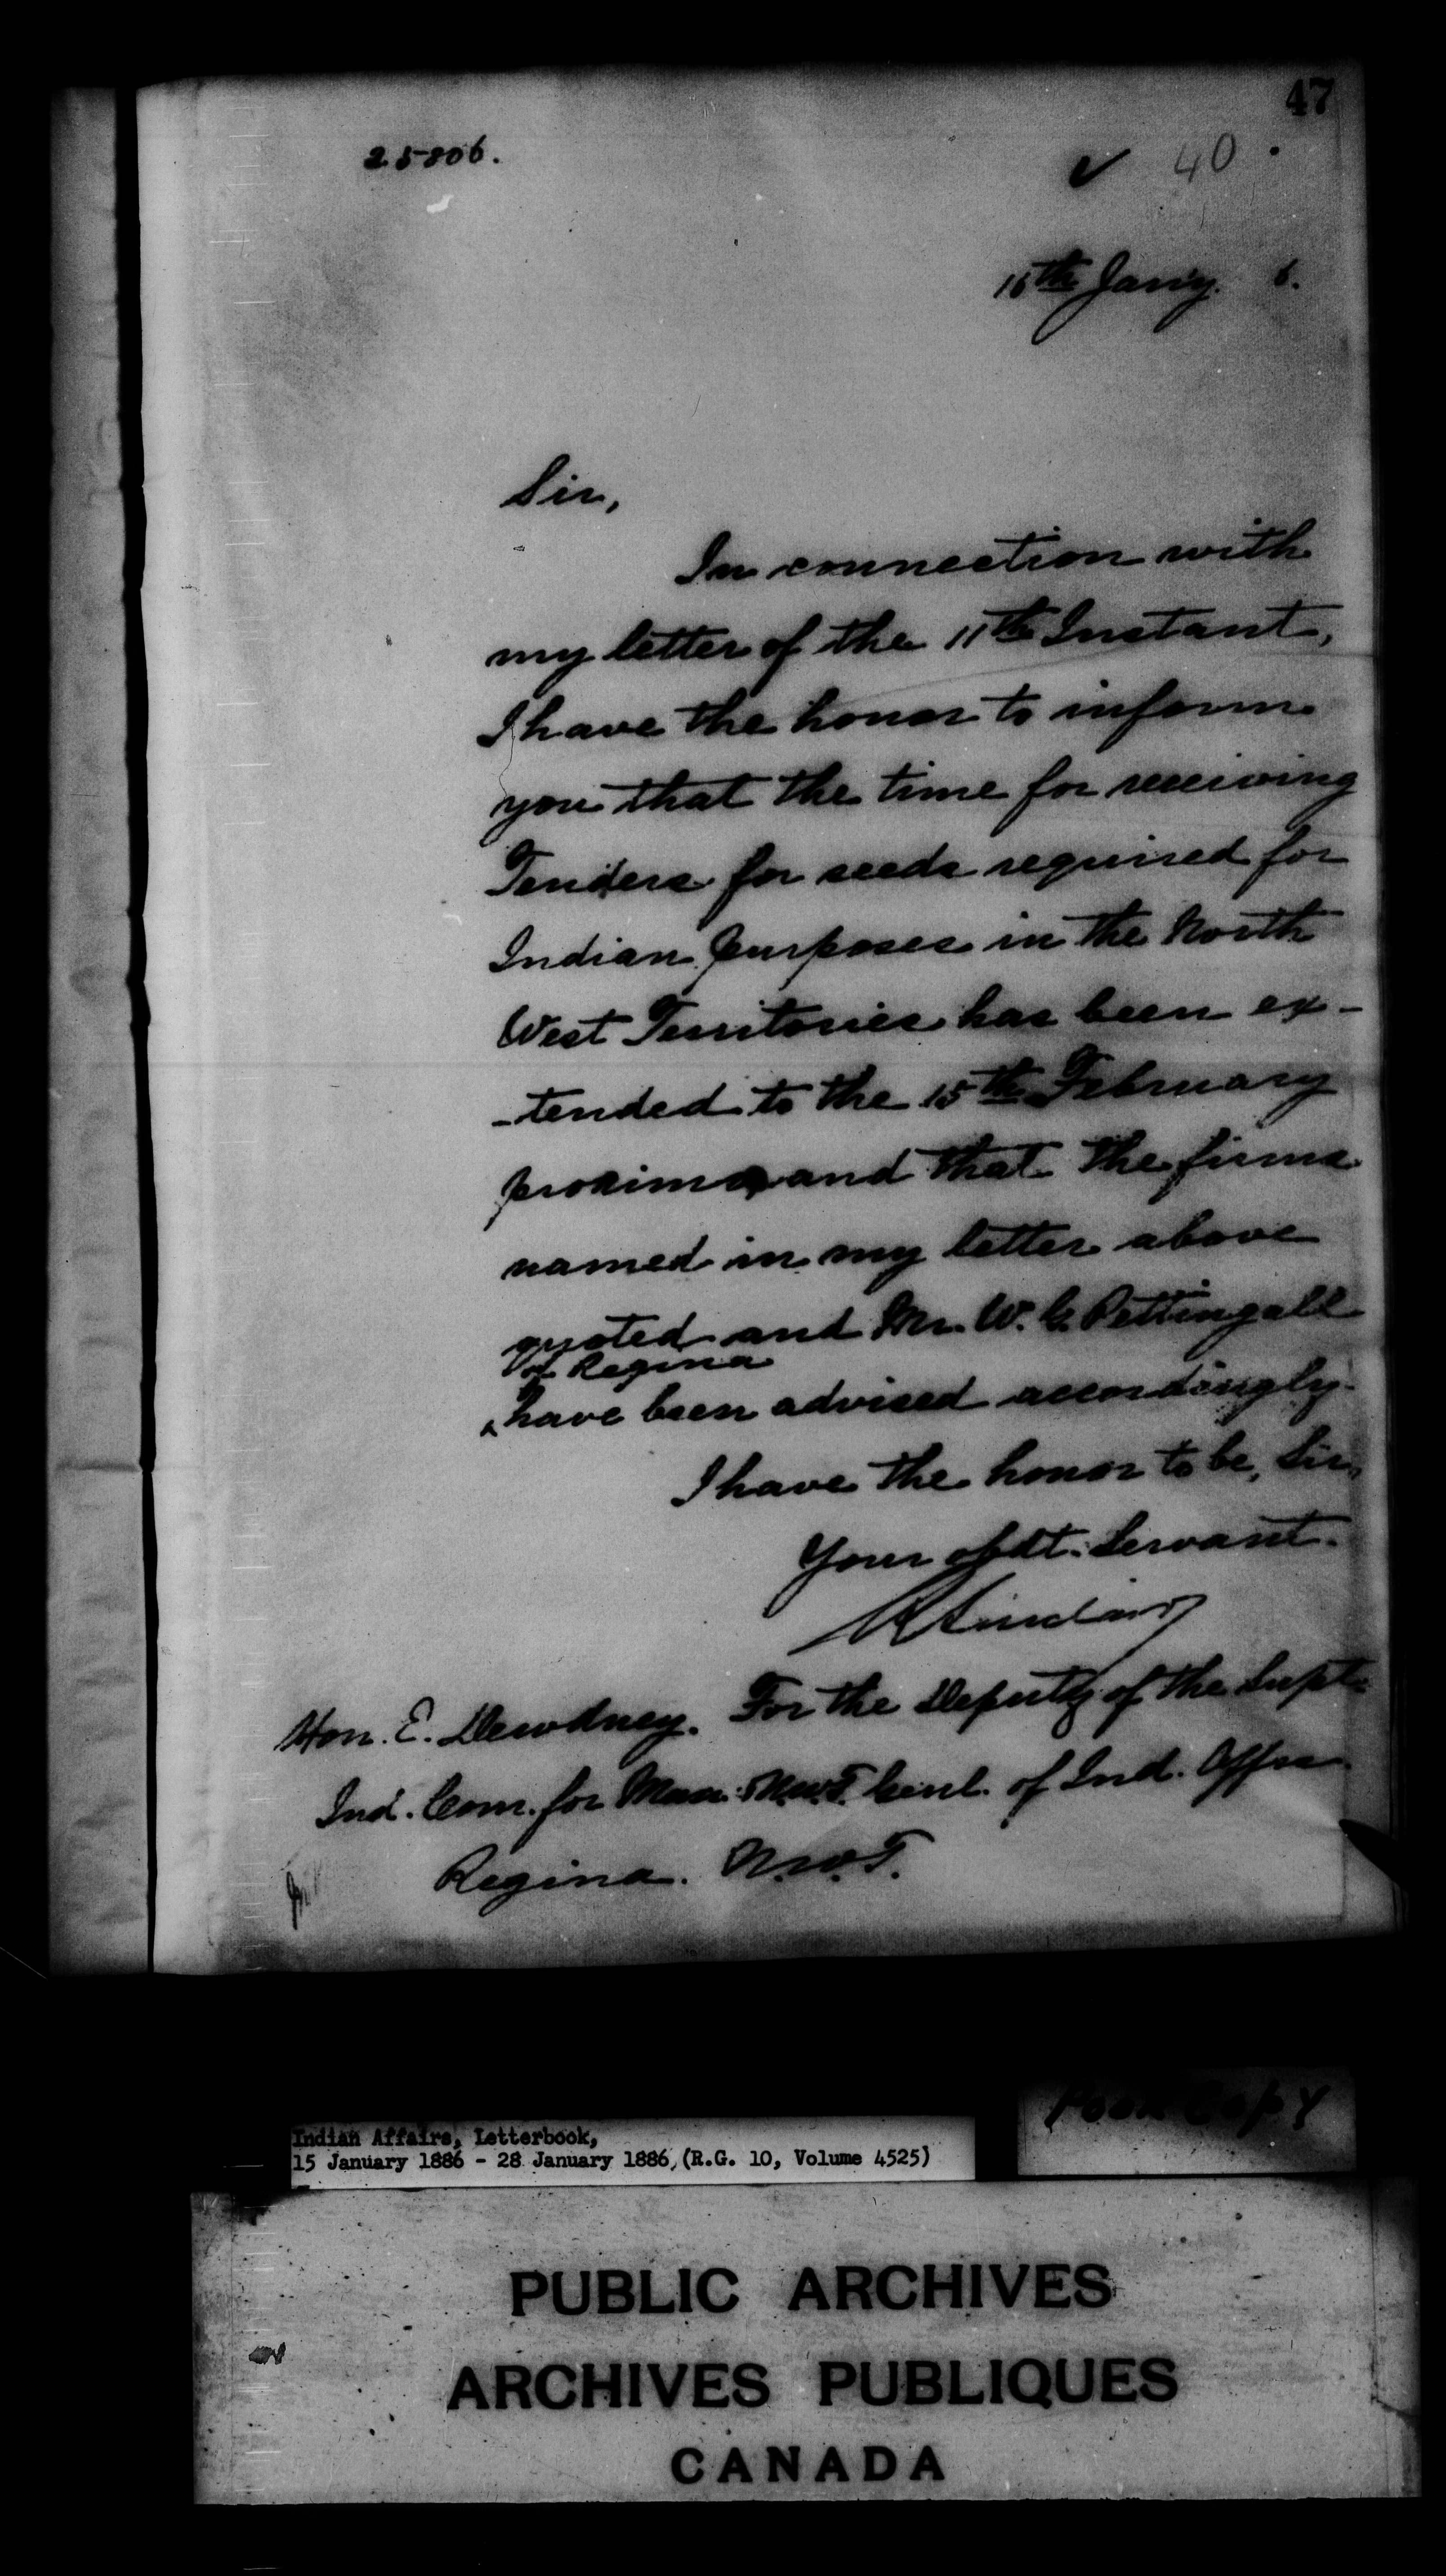 47
25806.
✓ 40
15th Jan'y. 6.
Sir,
In connection with
my letter of the 11th Instant,
I have the honor to inform
you that the time for receiving
Tenders for seeds required for
Indian purposes in the North
West Territories has been ex-
-tended to the 15th February
proximo and that the firms
named in my letter above
quoted and Mr. W. G. Pettingall
of Regina
^have been advised accordingly.
I have the honor to be, Sir,
Your obdt. Servant.
R Sinclair
Hon. E. Dewdney. For the Deputy of the Supt.
Ind. Com. for Man. N.W.T. Genl. of Ind. Affrs.
Regina. N.W.T.
Poor Copy
Indian Affairs, Letterbook,
15 January 1886 - 28 January 1886, (R.G. 10, Volume 4525)
PUBLIC ARCHIVES
ARCHIVES PUBLIQUES
CANADA